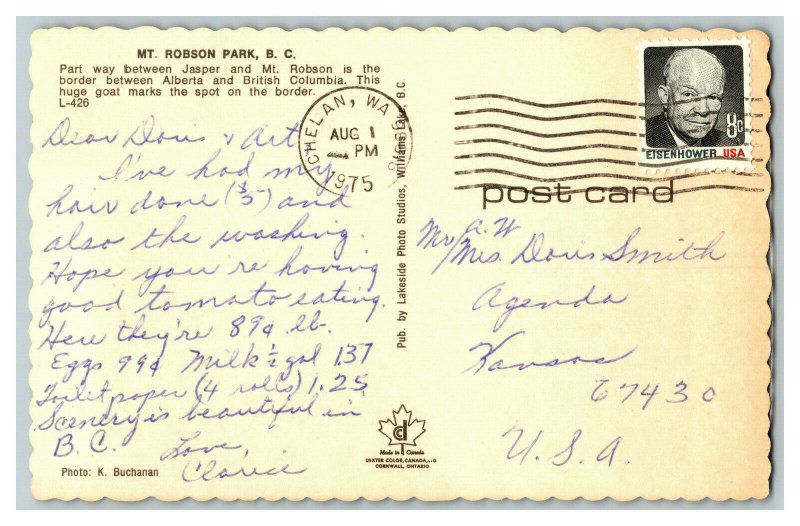 MT. ROBSON PARK, B. C.
Part way between Jasper and Mt. Robson is the
border between Alberta and British Columbia. This
huge goat marks the spot on the border.
L-426
Dear Doris & Art
I've had my
hair done ($5) and
also the washing.
Hope you're having
good tomato eating.
Here they're 89¢ lb.
Eggs 99¢ Milk ½ gal 1.37
Toilet paper (4 rolls) 1.25
Scenery is beautiful in
B. C. Love,
Clarice
Photo: K. Buchanan
Pub. by Lakeside Photo Studios, Williams Lake, B.C.
CHELAN, WA
AUG 1
PM
1975
8¢
EISENHOWER USA
post card
Mr. A. W
Mrs. Doris Smith
Agenda
Kansas
67430
U. S. A.
Made in Canada
DEXTER COLOR, CANADA, LTD.
CORNWALL, ONTARIO